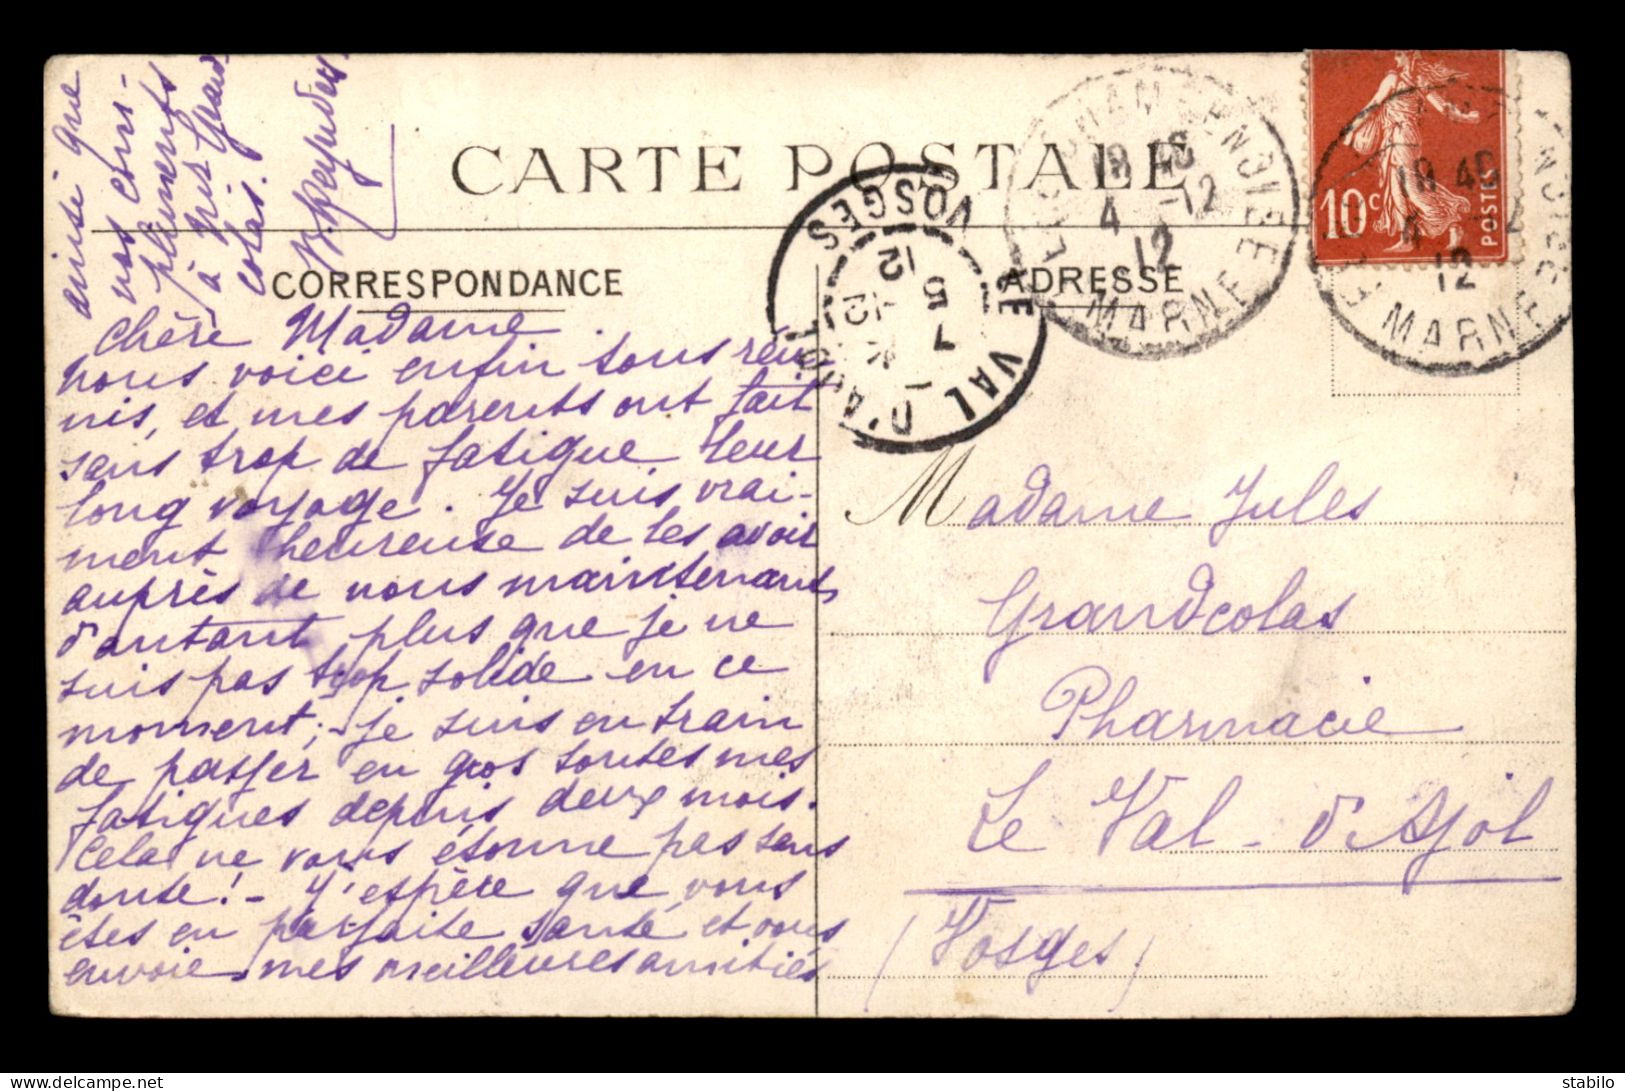 CARTE POSTALE
CORRESPONDANCE
ADRESSE
Chère Madame
nous voici enfin tous réu
nis, et mes parents ont fait
sans trop de fatigue leur
long voyage. Je suis vrai-
ment heureuse de les avoir
auprès de nous maintenant,
d'autant plus que je ne
suis pas trop solide en ce
moment; - je suis en train
de passer en gros toutes mes
fatigues depuis deux mois.
Cela ne vous étonne pas sans
doute! - J'espère que vous
êtes en parfaite santé, et vous
envoie mes meilleures amitiés
ainsi que
vos
à
colas.
Madame Jules
Grandcolas
Pharmacie
Le Val-d'Ajol
(Vosges)
10c
POSTES
18 40
4 -12
12
MARNE
18 40
4
12
MARNE
LE VAL D'AJOL
VOSGES
12